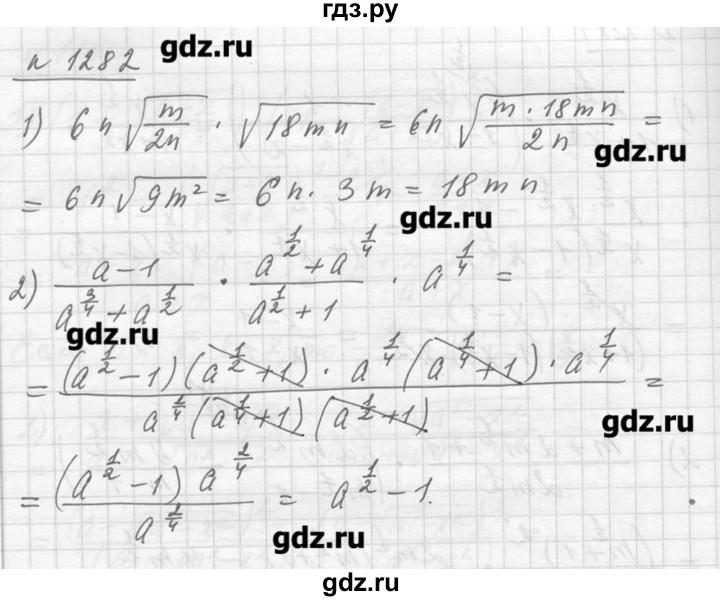 гдз.ру
n 1282 gdz.ru
1) 6n√(m/2n) · √(18mn) = 6n √(m · 18mn / 2n) =
gdz.ru
= 6n√(9m²) = 6n · 3m = 18mn
gdz.ru
2) (a-1)/(a^(3/4) + a^(1/2)) · (a^(1/2) + a^(1/4))/(a^(1/2) + 1) · a^(1/4) =
gdz.ru
= ((a^(1/2) - 1)(a^(1/2) + 1) · a^(1/4)(a^(1/4) + 1) · a^(1/4))/(a^(1/2)(a^(1/4) + 1)(a^(1/2) + 1)) =
gdz.ru
= ((a^(1/2) - 1) a^(2/4))/(a^(2/4)) = a^(1/2) - 1.
gdz.ru
gdz.ru